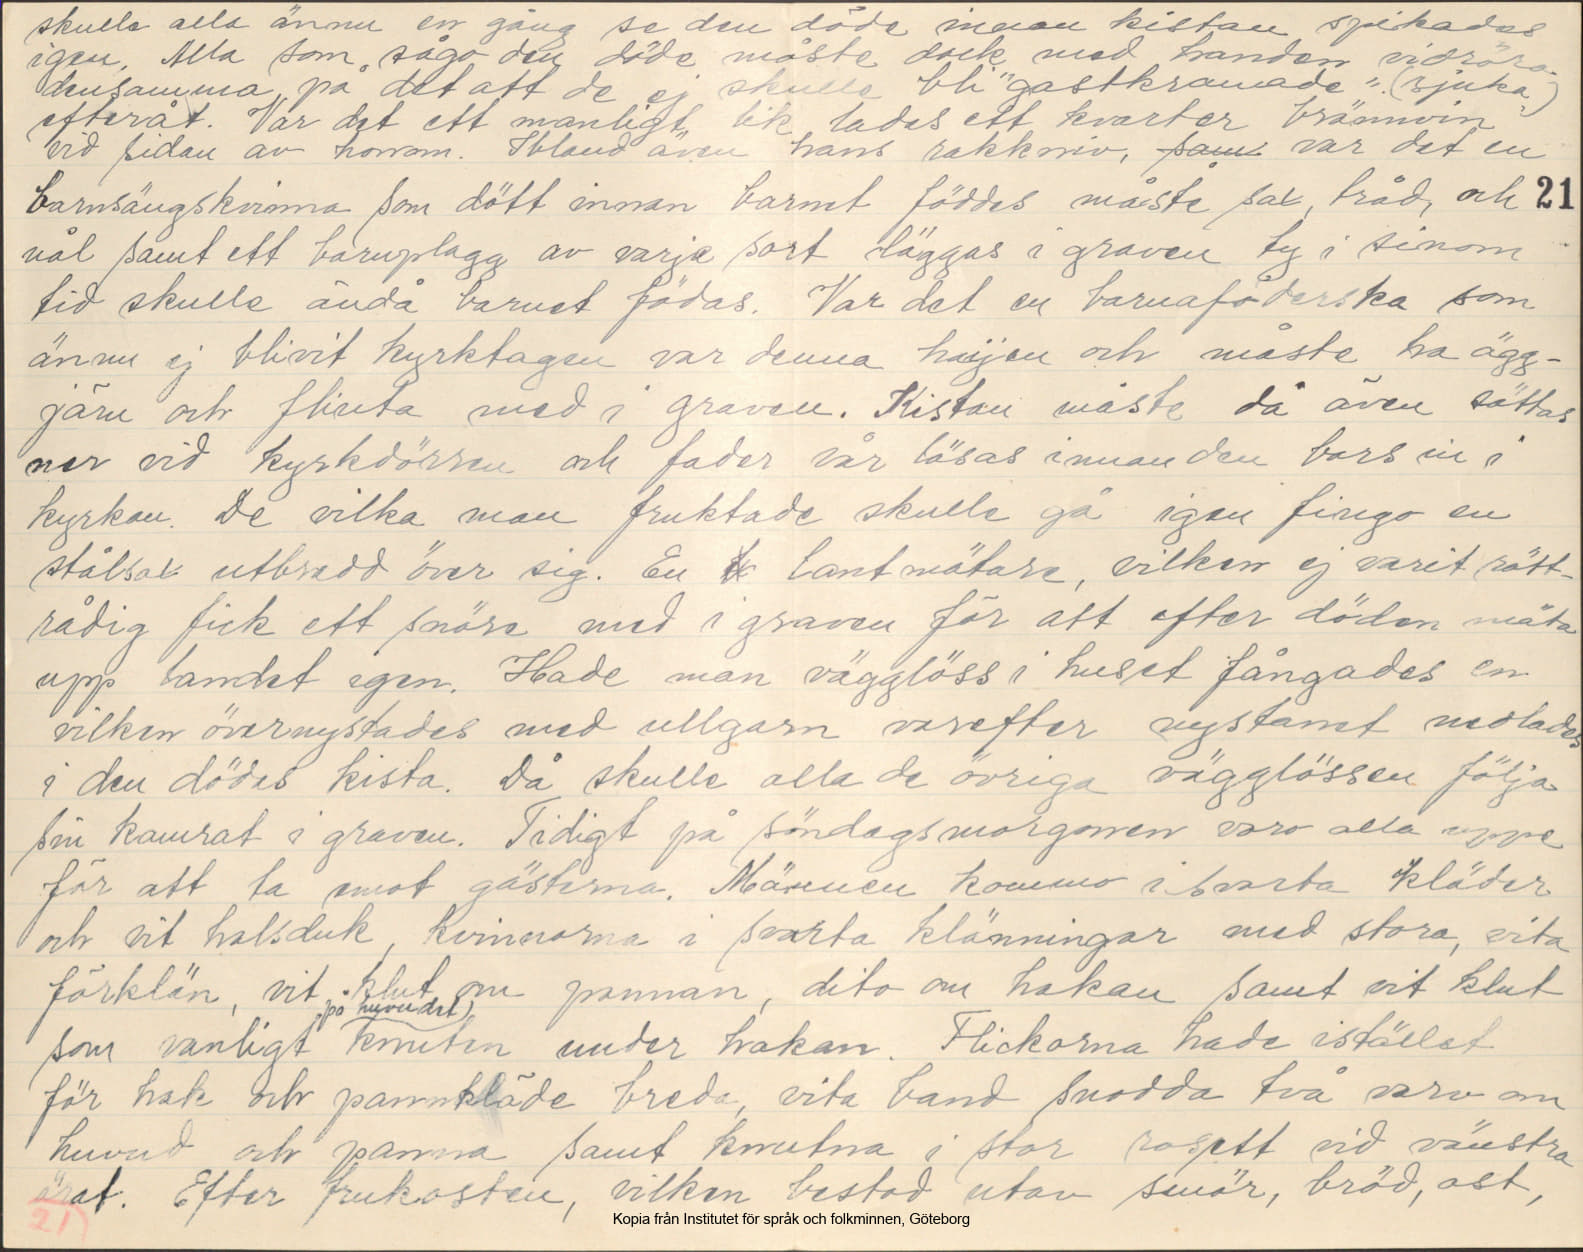 skulle alla ännu en gång se den döde innan kistan spikades
igen. Alla som sågo den döde måste dock med handen vidröra
densamma på det att de ej skulle bli "gastkramade". (sjuka)
efteråt. Var det ett manligt lik lades ett kvarter brännvin
vid sidan av honom. Ibland även hans rakkniv, som var det en
barnsängskvinna som dött innan barnet föddes måste sax, tråd, och 21
nål samt ett barnplagg av varje sort läggas i graven ty i sinom
tid skulle ändå barnet födas. Var det en barnaföderska som
ännu ej blivit kyrktagen var denna heijen och måste ha ägg-
järn och flinta med i graven. Kistan måste då även sättas
ner vid kyrkdörren och fader vår läsas innan den bars in i
kyrkan. De vilka man fruktade skulle gå igen fingo en
stålsax utbredd över sig. En lantmätare, vilken ej varit rätt-
rådig fick ett snöre med i graven för att efter döden mäta
upp landet igen. Hade man vägglöss i huset fångades en
vilken övernystades med ullgarn varefter nystanet nedlades
i den dödes kista. Då skulle alla de övriga vägglössen följa
sin kamrat i graven. Tidigt på söndagsmorgonen voro alla uppe
för att ta emot gästerna. Männen kommo i svarta kläder
och vit halsduk, kvinnorna i svarta klänningar med stora, vita
förklän, vit klut om pannan, dito om hakan samt vit klut
på huvudet)
som vanligt knuten under hakan. Flickorna hade istället
för hak och pannkläde breda, vita band snodda två varv om
huvud och panna samt knutna i stor rosett vid vänstra
örat. Efter frukosten, vilken bestod utav smör, bröd, ost,
21)
Kopia från Institutet för språk och folkminnen, Göteborg